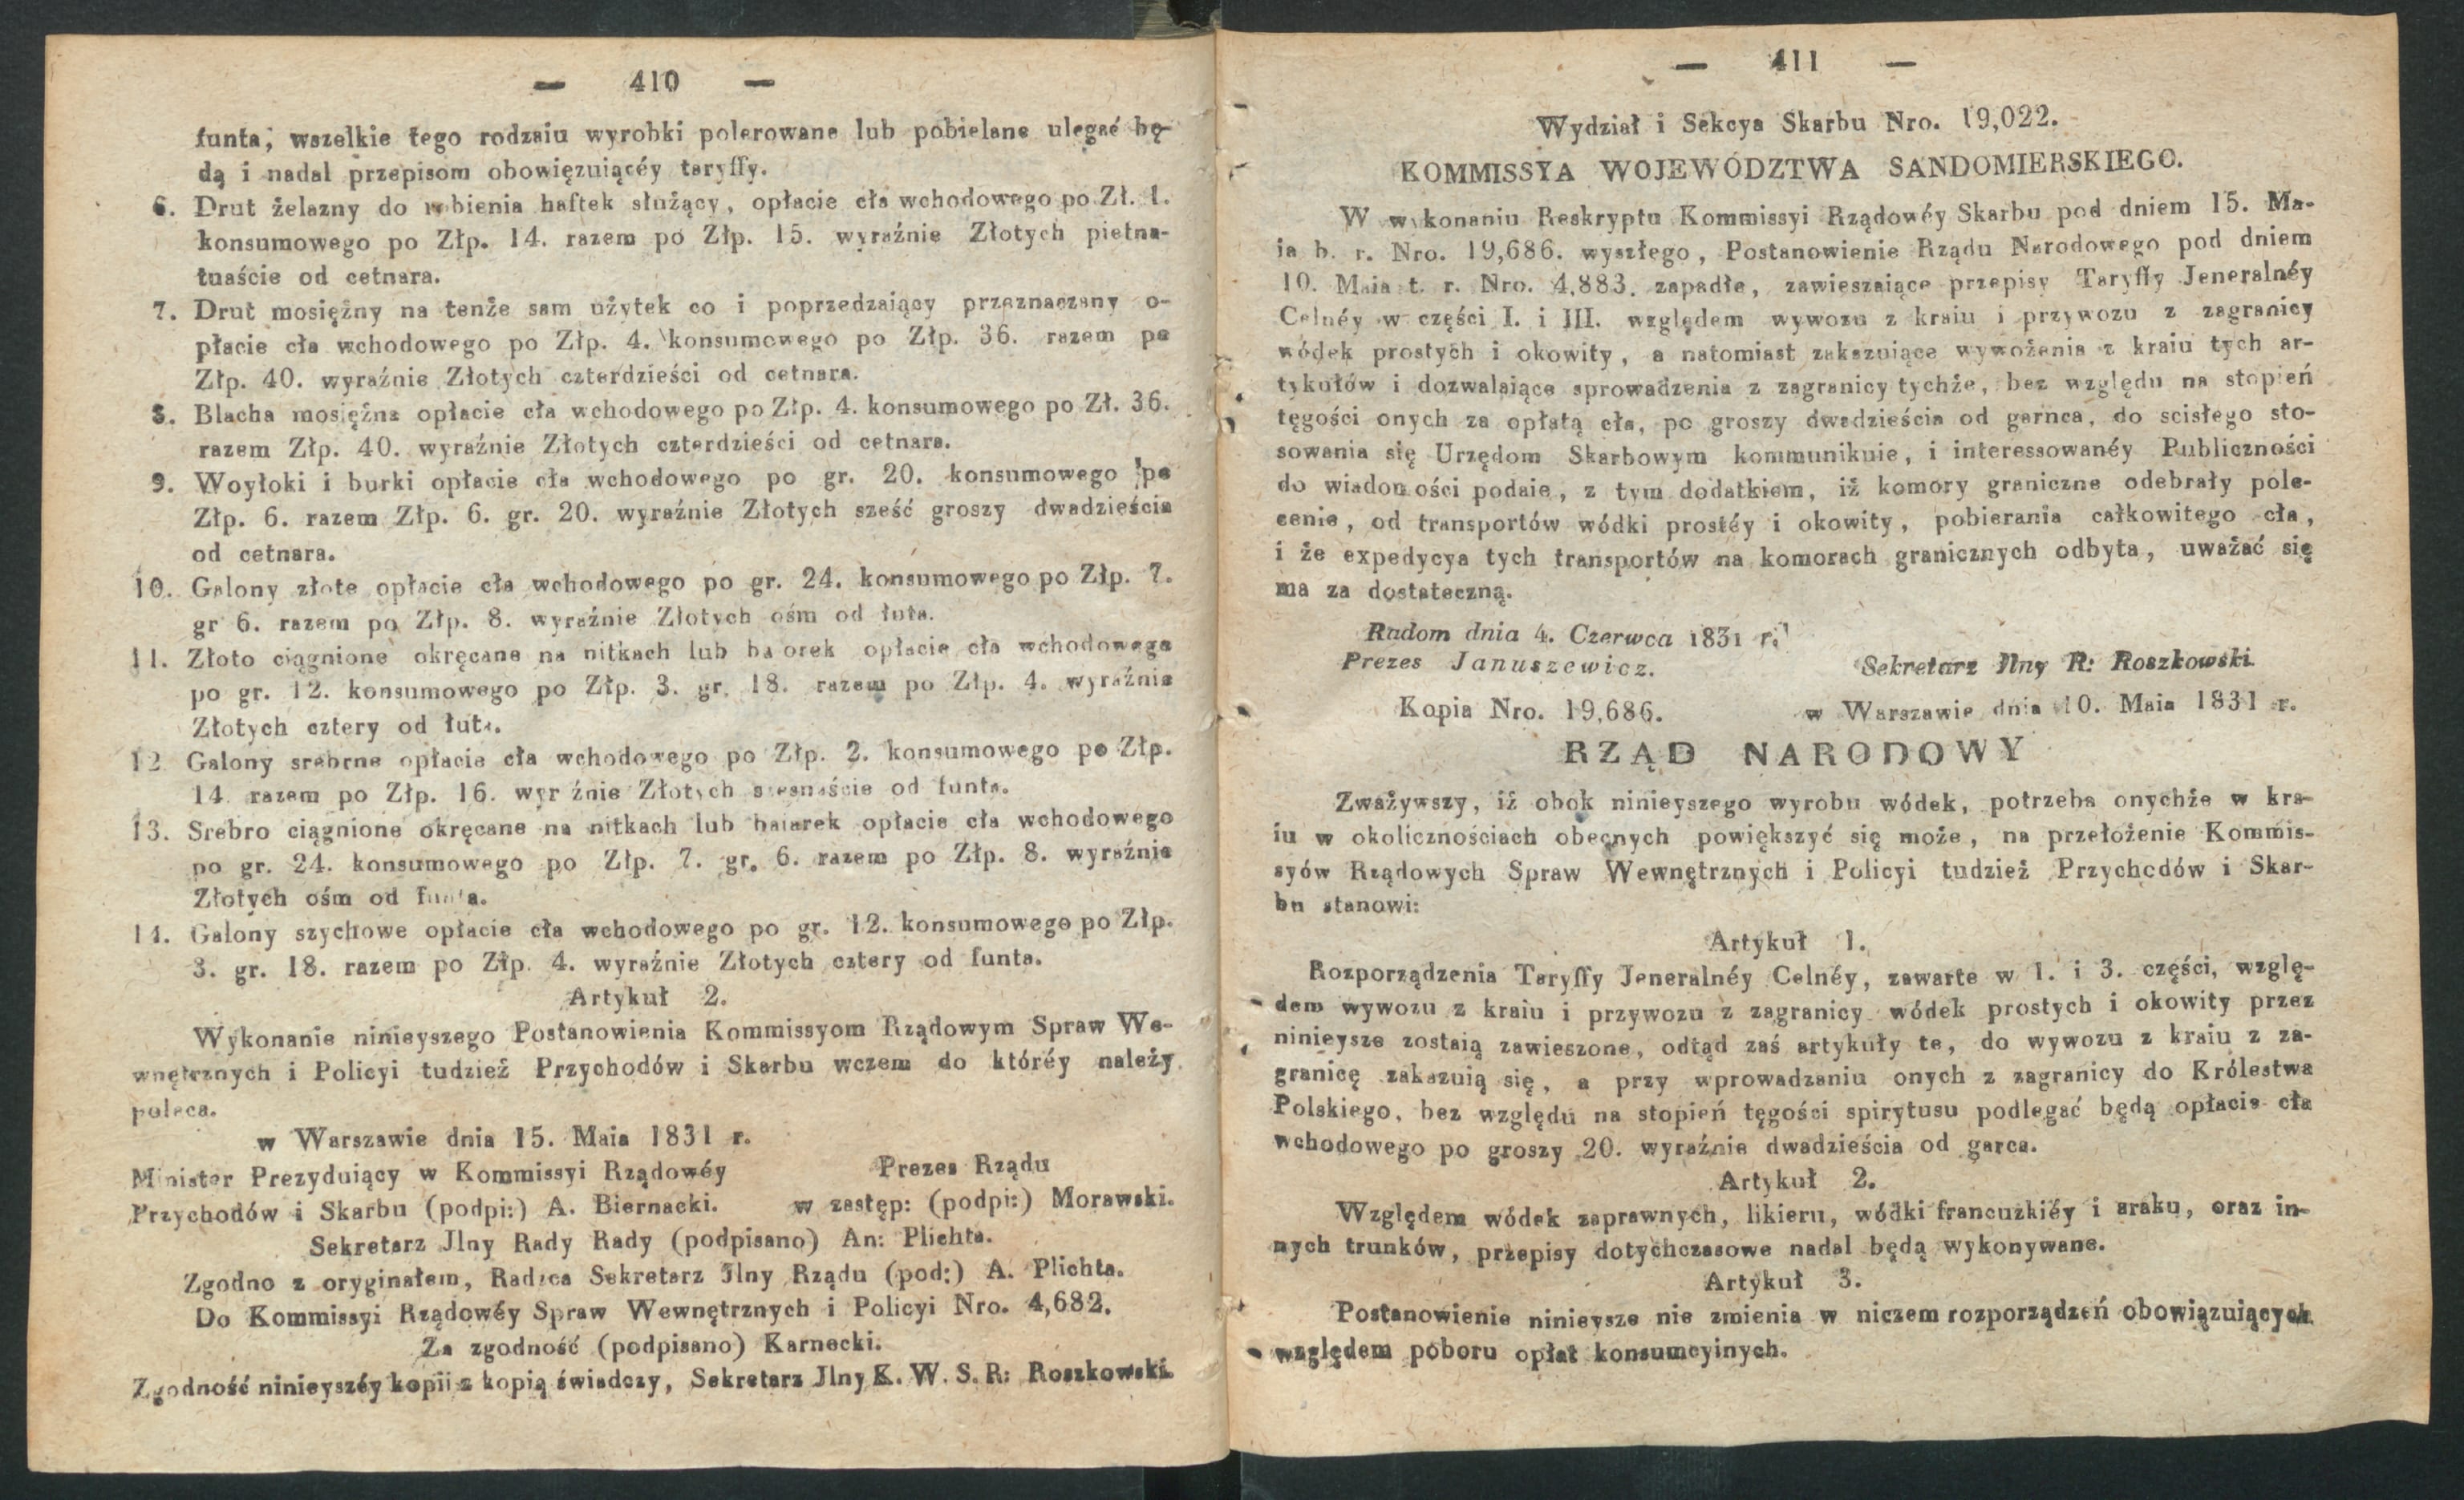 — 410 —
funta, wszelkie tego rodzaiu wyrobki polerowane lub pobielane ulegać bę-
dą i nadal przepisom obowięzuiącéy taryffy.
6. Drut żelazny do robienia haftek służący, opłacie cła wchodowego po Zł. 1.
konsumowego po Złp. 14. razem po Złp. 15. wyraźnie Złotych pietna-
tuaście od cetnara.
7. Drut mosiężny na tenże sam użytek co i poprzedzaiący przeznaczany o-
płacie cła wchodowego po Złp. 4. konsumowego po Złp. 36. razem po
Złp. 40. wyraźnie Złotych czterdzieści od cetnara.
8. Blacha mosiężna opłacie cła wchodowego po Złp. 4. konsumowego po Zł. 36.
razem Złp. 40. wyraźnie Złotych czterdzieści od cetnara.
9. Woyłoki i burki opłacie cła wchodowego po gr. 20. konsumowego po
Złp. 6. razem Złp. 6. gr. 20. wyraźnie Złotych sześć groszy dwadzieścia
od cetnara.
10. Galony złote opłacie cła wchodowego po gr. 24. konsumowego po Złp. 7.
gr 6. razem po Złp. 8. wyraźnie Złotych ośm od łuta.
11. Złoto ciągnione okręcane na nitkach lub baiorek opłacie cła wchodowego
po gr. 12. konsumowego po Złp. 3. gr. 18. razem po Złp. 4. wyraźnie
Złotych cztery od łuta.
12 Galony srebrne opłacie cła wchodowego po Złp. 2. konsumowego po Złp.
14. razem po Złp. 16. wyraźnie Złotych szesnaście od funta.
13. Srebro ciągnione okręcane na nitkach lub baiarek opłacie cła wchodowego
po gr. 24. konsumowego po Złp. 7. gr. 6. razem po Złp. 8. wyraźnie
Złotych ośm od funta.
14. Galony szychowe opłacie cła wchodowego po gr. 12. konsumowego po Złp.
3. gr. 18. razem po Złp. 4. wyraźnie Złotych cztery od funta.
Artykuł 2.
Wykonanie ninieyszego Postanowienia Kommissyom Rządowym Spraw We-
wnętrznych i Policyi tudzież Przychodów i Skarbu wczem do któréy należy
poleca.
w Warszawie dnia 15. Maia 1831 r.
Minister Prezyduiący w Kommissyi Rządowéy Prezes Rządu
Przychodów i Skarbu (podpi:) A. Biernacki. w zastęp: (podpi:) Morawski.
Sekretarz Jlny Rady Rady (podpisano) An: Plichta.
Zgodno z oryginałem, Radzca Sekretarz Jlny Rządu (pod:) A. Plichta.
Do Kommissyi Rządowéy Spraw Wewnętrznych i Policyi Nro. 4,682.
Za zgodność (podpisano) Karnecki.
Zgodność ninieyszéy kopii z kopią świadczy, Sekretarz Jlny K. W. S. R: Roszkowski.
— 411 —
Wydział i Sekcya Skarbu Nro. 19,022.
KOMMISSYA WOJEWÓDZTWA SANDOMIERSKIEGO.
W wykonaniu Reskryptu Kommissyi Rządowéy Skarbu pod dniem 15. Ma-
ia b. r. Nro. 19,686. wyszłego, Postanowienie Rządu Narodowego pod dniem
10. Maia t. r. Nro. 4,883. zapadłe, zawieszaiące przepisy Taryffy Jeneralnéy
Celnéy w części I. i III. względem wywozu z kraiu i przywozu z zagranicy
wódek prostych i okowity, a natomiast zakazuiące wywożenia z kraiu tych ar-
tykułów i dozwalaiące sprowadzenia z zagranicy tychże, bez względu na stopień
tęgości onych za opłatą cła, po groszy dwadzieścia od garnca, do scisłego sto-
sowania się Urzędom Skarbowym kommunikuie, i interessowanéy Publiczności
do wiadomości podaie, z tym dodatkiem, iż komory graniczne odebrały pole-
cenie, od transportów wódki prostéy i okowity, pobierania całkowitego cła,
i że expedycya tych transportów na komorach granicznych odbyta, uważać się
ma za dostateczną.
Radom dnia 4. Czerwca 1831 r.
Prezes Januszewicz. Sekretarz Jlny R: Roszkowski.
Kopia Nro. 19,686. w Warszawie dnia 10. Maia 1831 r.
RZĄD NARODOWY
Zważywszy, iż obok ninieyszego wyrobu wódek, potrzeba onychże w kra-
iu w okolicznościach obecnych powiększyć się może, na przełożenie Kommis-
syów Rządowych Spraw Wewnętrznych i Policyi tudzież Przychodów i Skar-
bu stanowi:
Artykuł 1.
Rozporządzenia Taryffy Jeneralnéy Celnéy, zawarte w 1. i 3. części, wzglę-
dem wywozu z kraiu i przywozu z zagranicy wódek prostych i okowity przez
ninieysze zostaią zawieszone, odtąd zaś artykuły te, do wywozu z kraiu z za-
granicę zakazuią się, a przy wprowadzaniu onych z zagranicy do Królestwa
Polskiego, bez względu na stopień tęgości spirytusu podlegać będą opłacie cła
wchodowego po groszy 20. wyraźnie dwadzieścia od garca.
Artykuł 2.
Względem wódek zaprawnych, likieru, wódki francuzkiéy i araku, oraz in-
nych trunków, przepisy dotychczasowe nadal będą wykonywane.
Artykuł 3.
Postanowienie ninieysze nie zmienia w niczem rozporządzeń obowiązuiących
względem poboru opłat konsumcyinych.